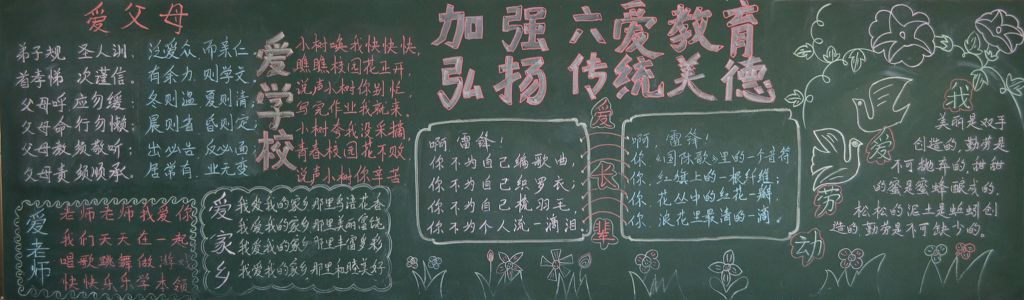 加强六爱教育
弘扬传统美德
爱父母
弟子规 圣人训 泛爱众 而亲仁
首孝悌 次谨信 有余力 则学文
父母呼 应勿缓 冬则温 夏则清
父母命 行勿懒 晨则省 昏则定
父母教 须敬听 出必告 反必面
父母责 须顺承 居常有 业无变
爱学校
小树唤我快快快,
瞧瞧校园花卫开,
说声小树你别忙,
写完作业我就来。
小树夸我没采摘
青春校园花不败
说声小树你辛苦
爱老师
老师老师我爱你
我们天天在一起
唱歌跳舞做游戏
快快乐乐学本领
爱家乡
我爱我的家乡那里鸟语花香
我爱我的家乡那里美丽富饶
我爱我的家乡那里丰富多彩
我爱我的家乡那里和睦美好
爱长辈
啊,雷锋!
你不为自己编歌曲,
你不为自己织罗衣;
你不为自己梳羽毛,
你不为个人流一滴泪
啊,雷锋!
你,《国际歌》里的一个音符
你,红旗上的一根纤维;
你,花丛中的红花一瓣
你,浪花里最清的一滴。
我爱劳动
美丽是双手
创造的,勤劳是
不可抛弃的,甜甜
的蜜是蜜蜂酿成的,
松松的泥土是蚯蚓创
造的勤劳是不可缺少的。